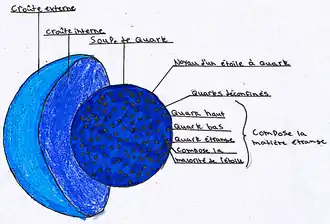 Croûte externe
Croûte interne
Soupe de Quark
Noyau d'un étoile à quark
Quarks déconfinés
Quark haut
Quark bas
Quark étrange
Compose la
majorité de l'étoile
Compose la
matière étrange